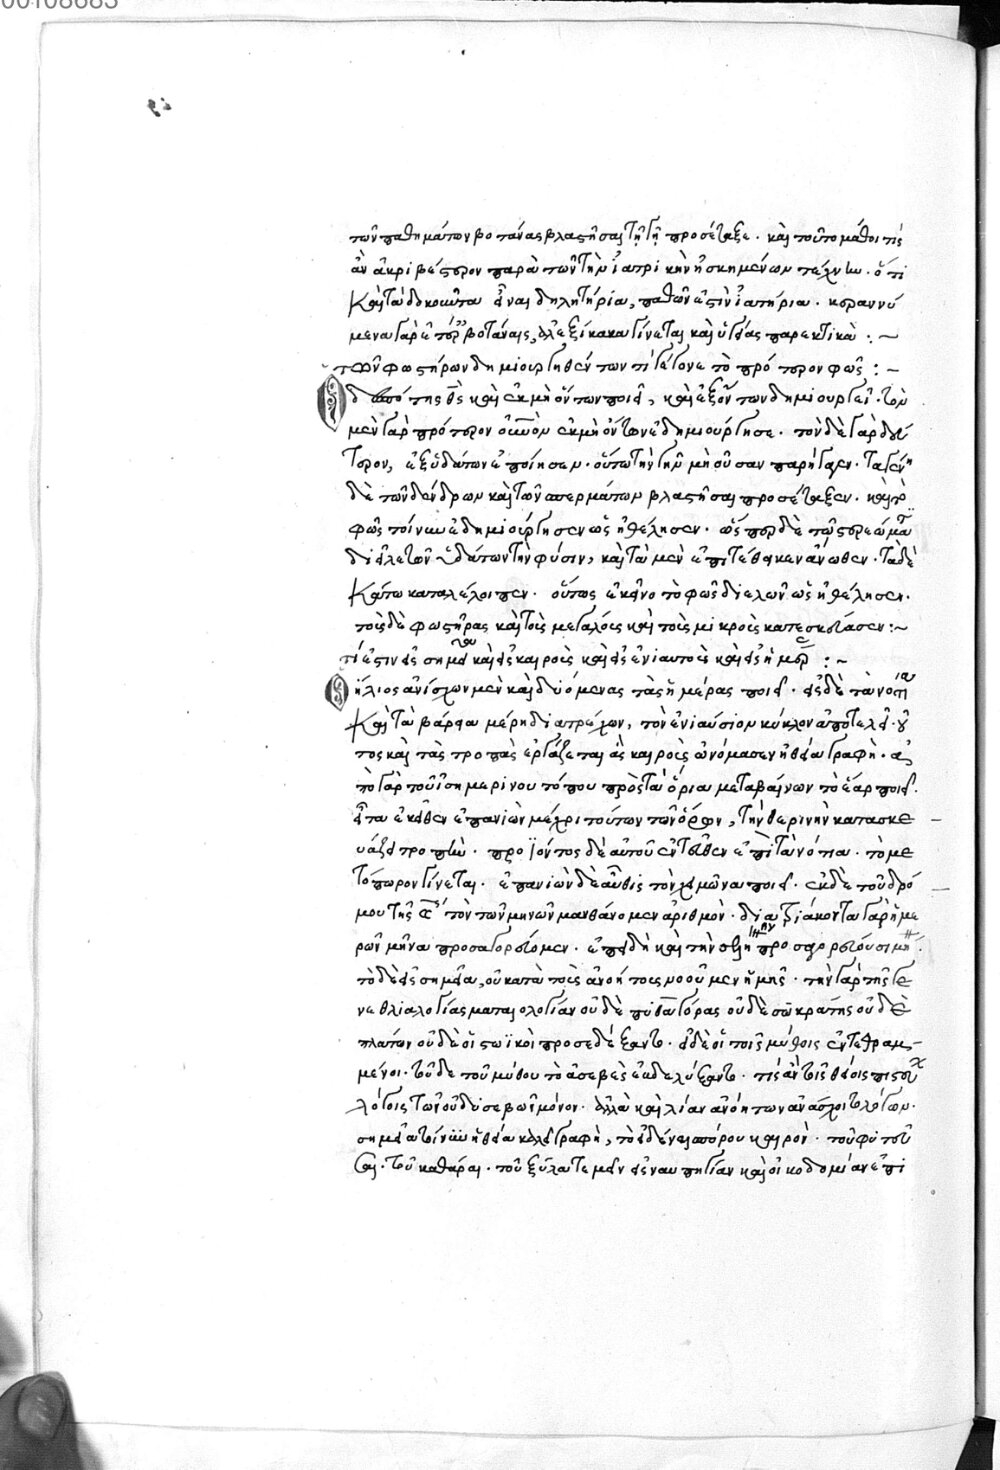 00108683
των παθημάτων βοτάνας βλαστῆσαι τῆ γῆ προσέταξε. καὶ τοῦτο μάθοι τίς
ἂν ἀκριβέστερον παρὰ τῶν τὴν ἰατρικὴν ἠσκημένων τέχνην. ὅτι
καὶ τὰ δοκοῦντα εἶναι δηλητήρια, παθῶν ἐστὶν ἰατήρια. κεραννύ
μενα γὰρ ἑτέραις βοτάναις, ἀλεξίκακα γίνεται καὶ ὑγείας παρεκτικὰ :~
τῶν φωστήρων δημιουργηθέντων τί γέγονε τὸ πρότερον φῶς :~
Ὁ δεσπότης θς καὶ ἐκ μὴ ὄντων ποιεῖ, καὶ ἐξ ὄντων δημιουργεῖ. τὸν
μὲν γὰρ πρότερον οὐνον ἐκ μὴ ὄντων ἐδημιούργησε. τὸν δὲ γὰρ δεύ
τερον, ἐξ ὑδάτων ἐποίησεν. οὕτω τὴν γῆν μὴ οὖσαν παρήγαγεν. τὰ γένη
δὲ τῶν δένδρων καὶ τῶν σπερμάτων βλαστῆσαι προσέταξεν. καὶ τὸ
φῶς τοίνυν ἐδημιούργησεν ὡς ἠθέλησεν. ὥσπερ δὲ τῶ στερεώματι
διεῖλε τῶν ὑδάτων τὴν φύσιν, καὶ τὰ μὲν ἐπιτέθεικεν ἄνωθεν. τὰ δὲ
κάτω καταλέλοιπεν. οὕτως ἐκεῖνο τὸ φῶς διελὼν ὡς ἠθέλησεν.
τοὺς δὲ φωστῆρας καὶ τοὺς μεγάλους καὶ τοὺς μικροὺς κατεσκεύασεν :~
τί ἐστιν εἰς σημεῖα καὶ εἰς καιροὺς καὶ εἰς ἐνιαυτοὺς καὶ εἰς ἡμέρας :~
Ὁ ἥλιος ἀνίσχων μὲν καὶ δυόμενος τὰς ἡμέρας ποιεῖ. εἰς δὲ τὰ νότια
καὶ τὰ βόρεια μέρη διατρέχων, τὸν ἐνιαύσιον κύκλον ἀποτελεῖ. οὗ
τος καὶ τὰς τροπὰς ἐργάζεται ἃς καιροὺς ὠνόμασεν ἡ θεία γραφή. ἀπὸ
τὸ γὰρ τοῦ ἰσημερινοῦ τόπου πρὸς τὰ ὅρια μεταβαίνων τὸ ἔαρ ποιεῖ.
εἶτα ἐκεῖθεν ἐπανιὼν μέχρι τούτων τῶν ὅρων, τὴν θερινὴν κατασκε
υάζει τροπὴν. προϊόντος δὲ αὐτοῦ ἐντεῦθεν ἐπὶ τὰ νότια. τὸ με
τόπωρον γίνεται. ἐπανιὼν δὲ αὖθις τὸν χειμῶνα ποιεῖ. ἐκ δὲ τοῦ δρό
μου τῆς τὸν τῶν μηνῶν μανθάνομεν ἀριθμὸν. διὰ τριάκοντα γὰρ ἡμε
ρῶν μῆνα προσαγορεύομεν. ἐπειδὴ καὶ τὴν προσαγορεύουσι μήνην.
τὸ δὲ εἰς σημεῖα, οὐ κατὰ τοὺς ἀνοήτους νοοῦμεν ἡμεῖς. τὴν γὰρ τῆς γε
νεθλιαλογίας ματαιολογίαν οὐδὲ πυθαγόρας οὐδὲ σωκράτης οὐδὲ
πλάτων οὐδὲ οἱ στωϊκοὶ προσεδέξαντο. εἰ δὲ οἱ τοῖς μύθοις ἐντεθραμ-
μένοι. τοῦδε τοῦ μύθου τὸ ἀσεβὲς ἐβδελύξαντο. τίς ἂν τοῖς θείοις πιστεύων
λόγοις τῶν οὐ δυσσεβῶν μόνον. ἀλλὰ καὶ λίαν ἀνοήτων ἀνάσχοιτο λόγων.
σημεῖα τοίνυν ἡ θεία καλεῖ γραφὴ, τὸ εἰδέναι σπόρου καιρὸν. τοῦ φυτεῦ
σαι. τοῦ καθᾶραι. τοῦ ξύλα τεμεῖν εἰς ναυπηγίαν καὶ οἰκοδομίαν ἐπι